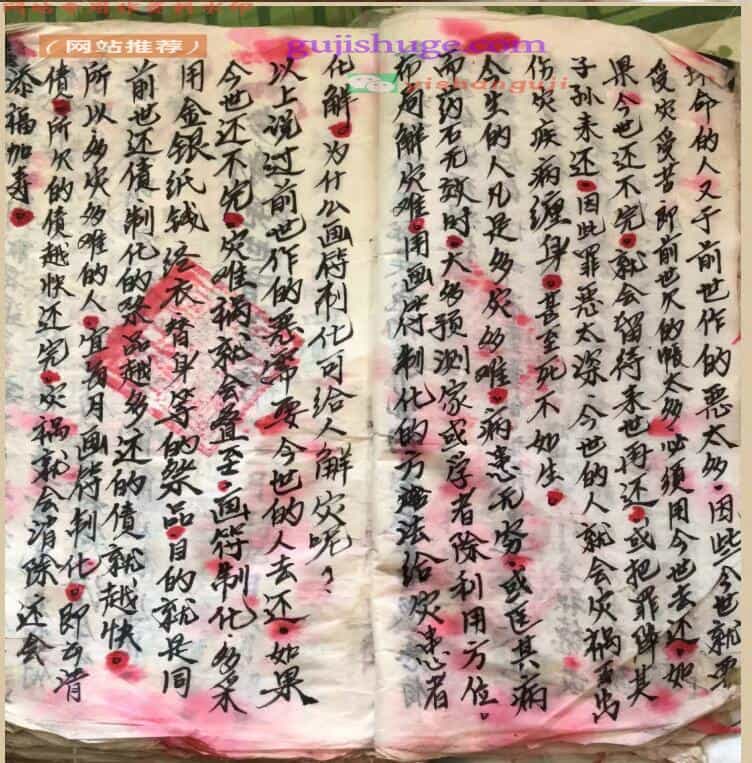 (网站推荐)
gujishuge.com
yishanguji
命的人又于前世作的恶太多.因些今世就要
受灾受苦.即前世欠的帐太多.必须用今世去还.如
果今世还不完.就会留待来世再还.或把罪降其
子孙来还.因此罪恶太深.今世的人就会灾祸
伤灾疾病缠身.甚至死不如生.
今生的人凡是多灾多难.病患无穷.或医其病
而药石无效时.大多预测家或学者除利用方位.
解灾难.用画符制化的方法给灾患者
化解.为什么画符制化可给人解灾呢?
以上说过前世作的恶需要今世的人去还.如果
今世还不完.灾难祸就会叠至.画符制化.多采
用金银纸钱.经衣替身等的祭品.目的就是同
前世还债.制化的祭品越多.还的债就越快.
所以多灾多难的人.宜每月画符制化.即去清
债.所欠的债越快还完.灾祸就会消除.还会
添福加寿.